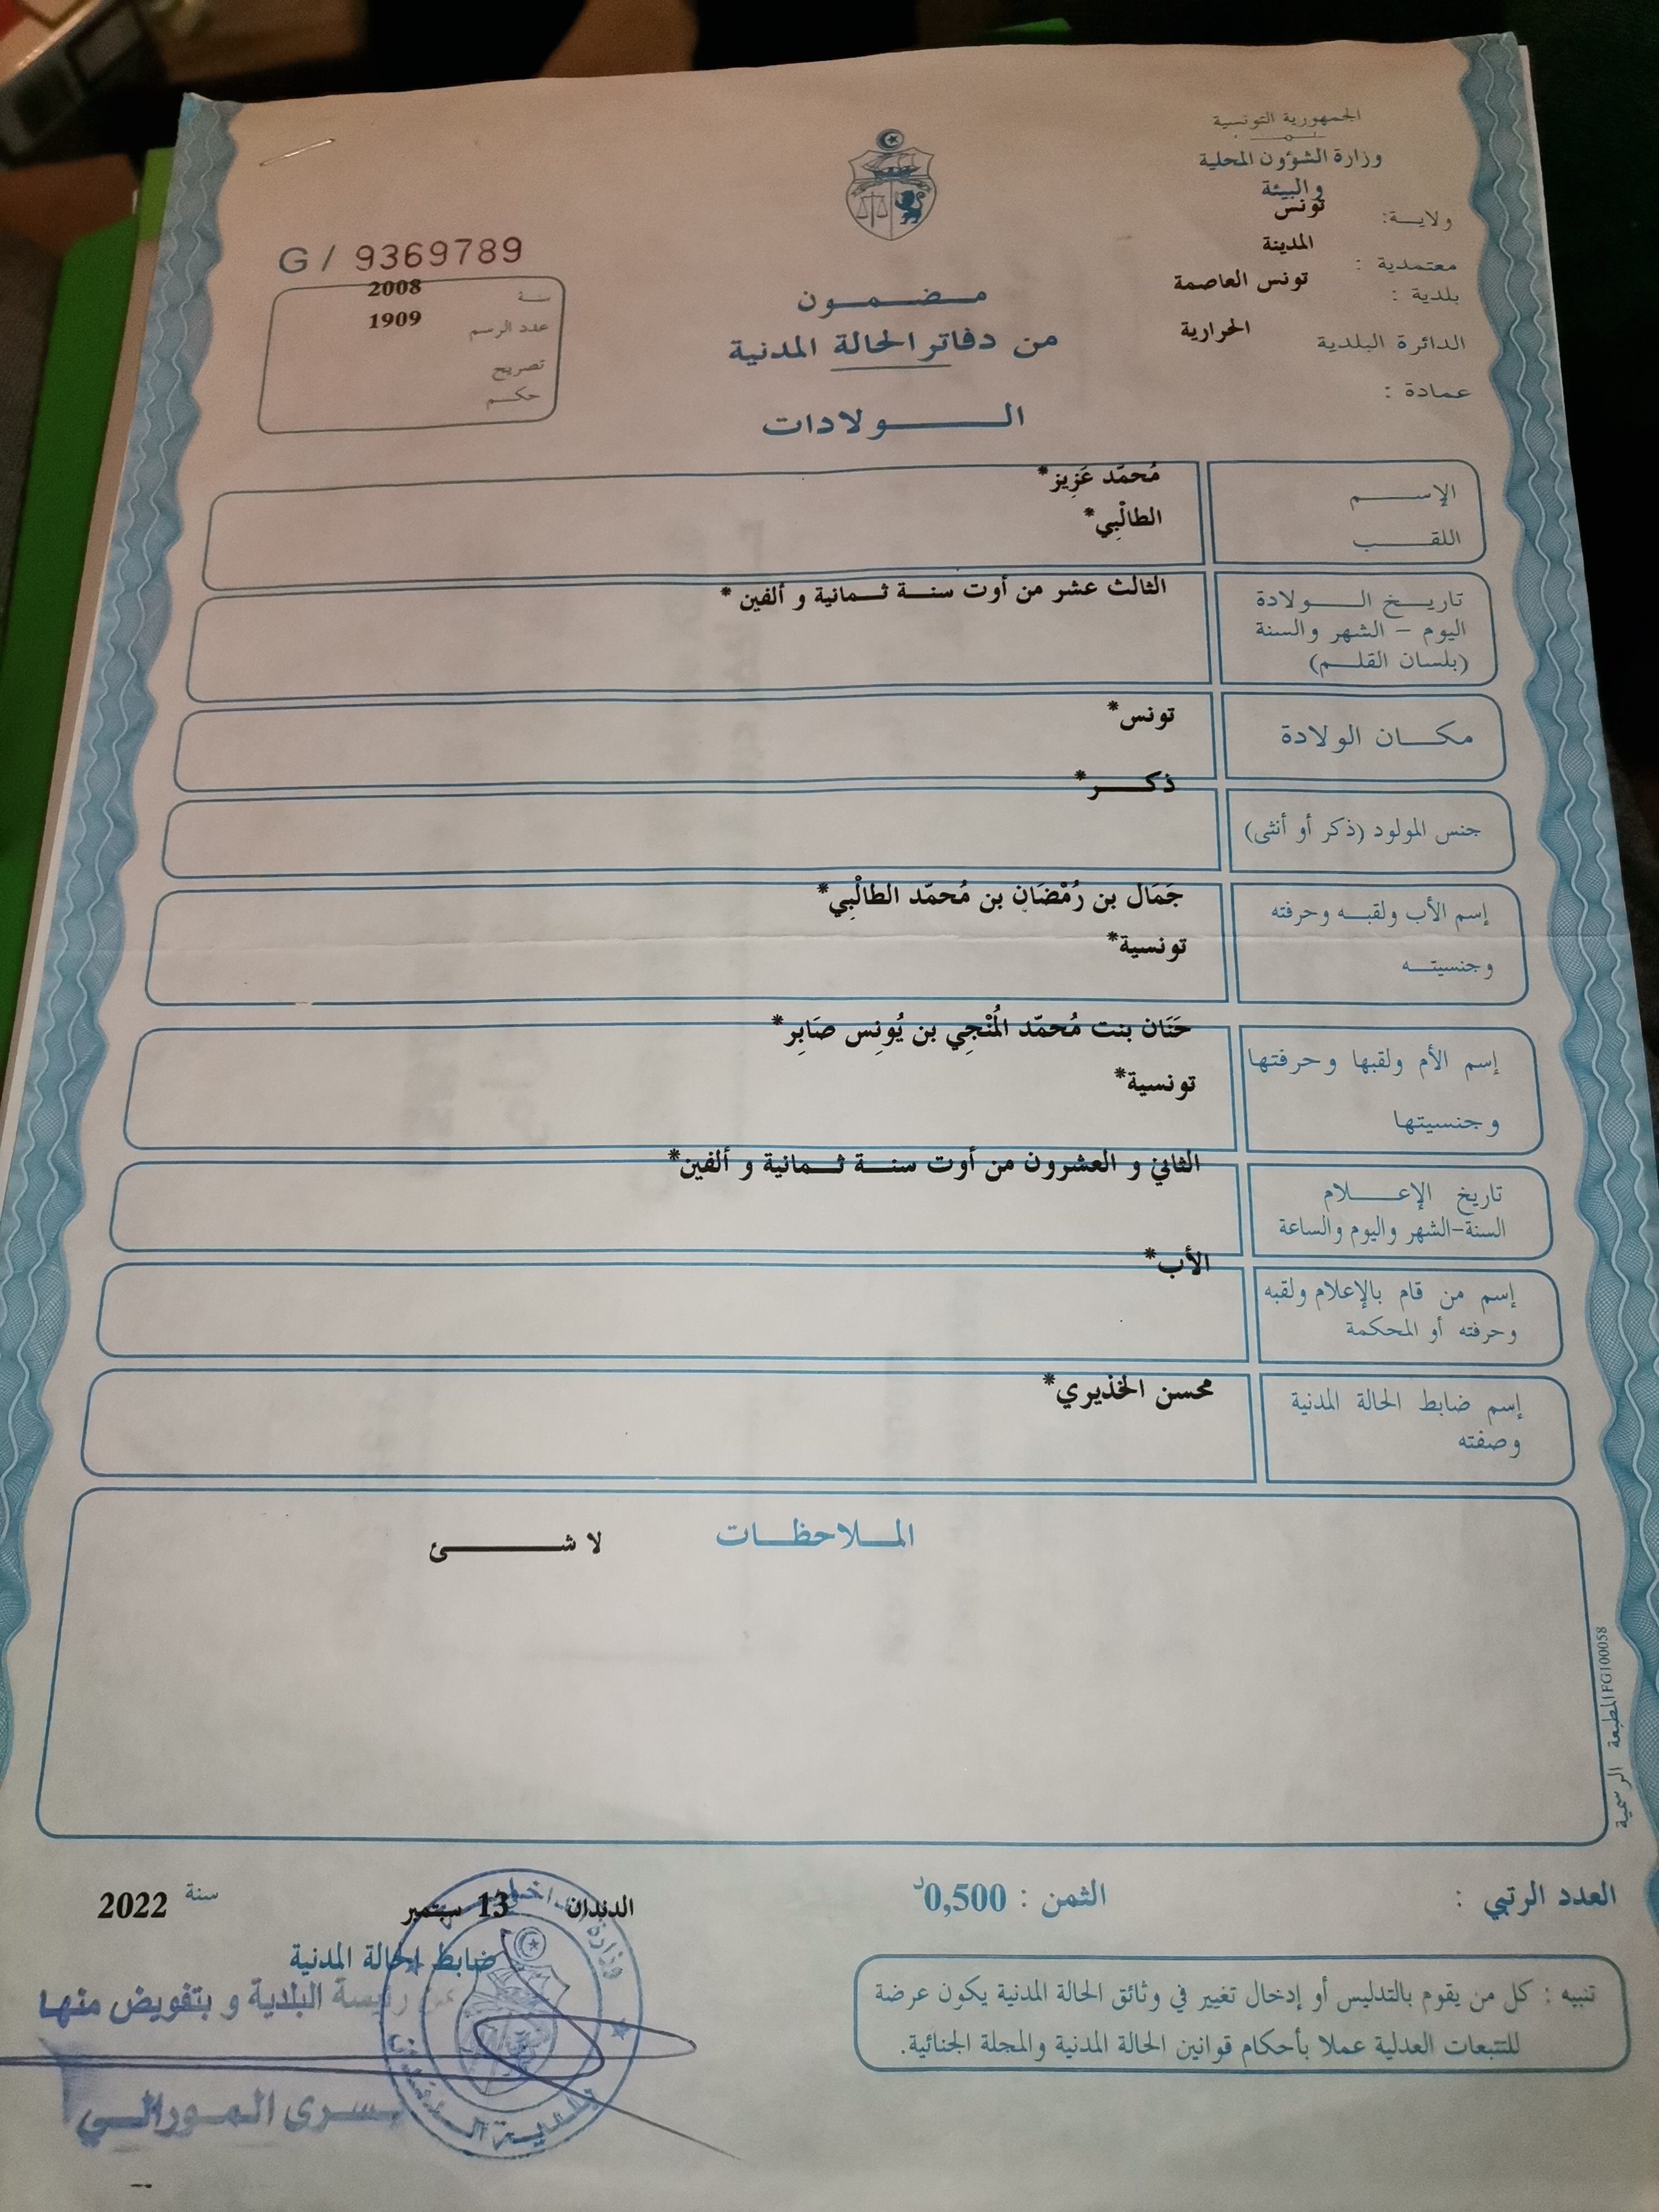 الجمهورية التونسية
وزارة الشؤون المحلية
والبيئة
ولاية: تونس
معتمدية : المدينة
بلدية : تونس العاصمة
الدائرة البلدية الحرارية
عمادة :
G / 9369789
سنة 2008
عدد الرسم 1909
تصريح
حكم
مضمون
من دفاتر الحالة المدنية
الولادات
الإسم مُحمّد عَزِيز*
اللقب الطالْبِي*
تاريخ الولادة
اليوم - الشهر والسنة
(بلسان القلم)
الثالث عشر من أوت سنة ثمانية و ألفين *
مكان الولادة تونس*
جنس المولود (ذكر أو أنثى) ذكر*
إسم الأب ولقبه وحرفته جَمَال بن رُمْضَان بن مُحمّد الطالْبِي*
وجنسيته تونسية*
إسم الأم ولقبها وحرفتها حَنَان بنت مُحمّد المُنْجِي بن يُونِس صَابِر*
وجنسيتها تونسية*
تاريخ الإعلام الثاني و العشرون من أوت سنة ثمانية و ألفين*
السنة-الشهر واليوم والساعة
إسم من قام بالإعلام ولقبه الأب*
وحرفته أو المحكمة
إسم ضابط الحالة المدنية محسن الخذيري*
وصفته
الملاحظات لا شئ
المطبعة الرسمية FG100058
العدد الرتبي :
الثمن : 0,500د
الدندان 13 سبتمبر سنة 2022
ضابط الحالة المدنية
عن رئيسة البلدية و بتفويض منها
يسرى المورالي
تنبيه : كل من يقوم بالتدليس أو إدخال تغيير في وثائق الحالة المدنية يكون عرضة
للتتبعات العدلية عملا بأحكام قوانين الحالة المدنية والمجلة الجنائية.